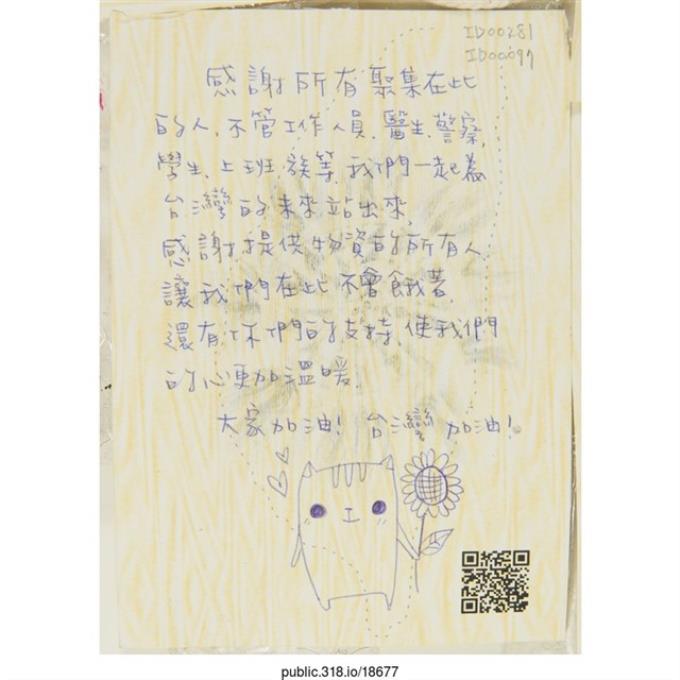 ID00281
ID00097
感謝所有聚集在此
的人,不管工作人員,醫生,警察,
學生,上班族等,我們一起為
台灣的未來站出來,
感謝提供物資的所有人
讓我們在此不會餓著,
還有你們的支持,使我們
的心更加溫暖.
大家加油! 台灣加油!
public.318.io/18677